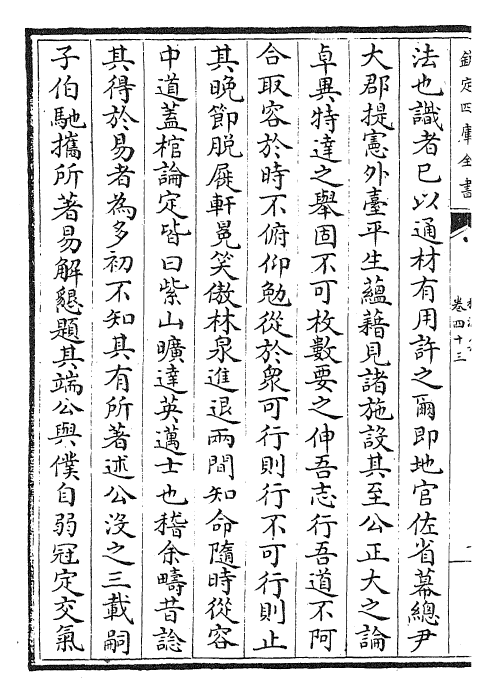 欽定四庫全書
卷四十三
法也識者已以通材有用許之爾即地官佐省幕總尹
大郡提憲外臺平生蘊藉見諸施設其至公正大之論
卓異特達之舉固不可枚數要之伸吾志行吾道不阿
合取容於時不俯仰勉從於衆可行則行不可行則止
其晚節脱屣軒冕笑傲林泉進退兩間知命隨時從容
中道蓋棺論定皆曰紫山曠達英邁士也稽余疇昔諗
其得於易者為多初不知其有所著述公沒之三載嗣
子伯馳攜所著易解懇題其端公與僕自弱冠定交氣